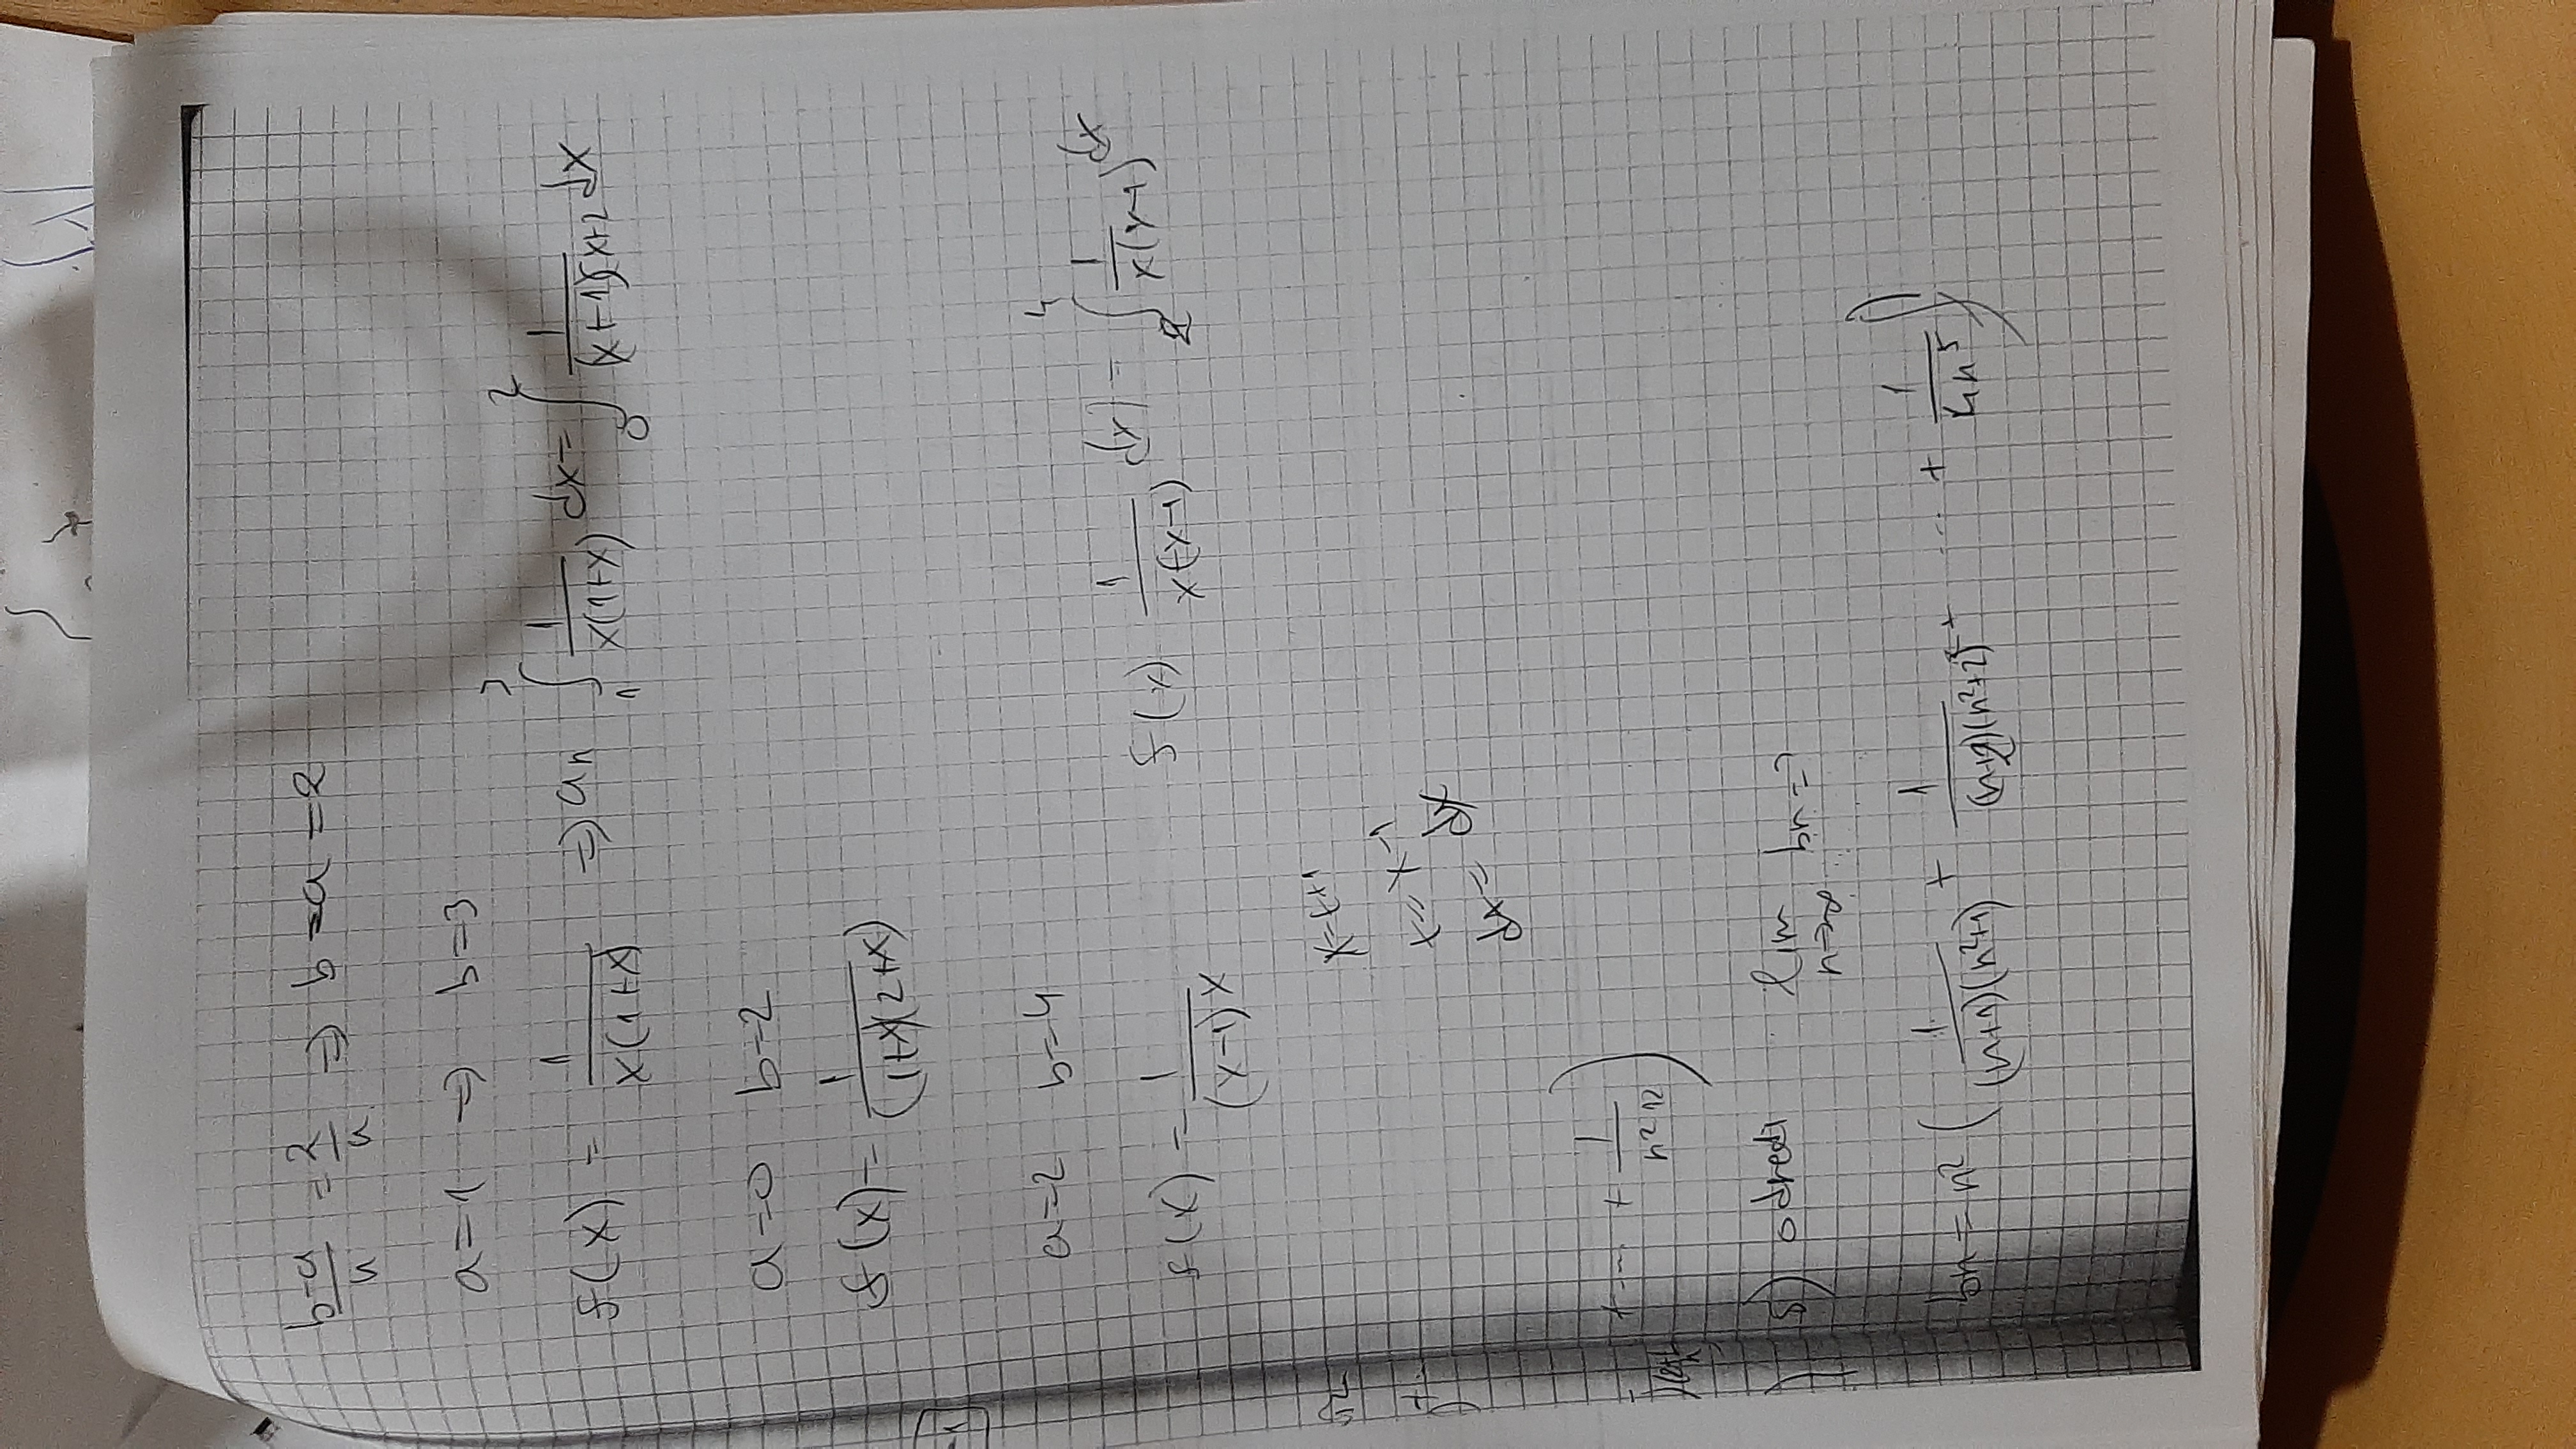 b-a/n = 2/n ⇒ b-a=2
a=1 ⇒ b=3
f(x) = 1/(x(1+x)) ⇒ an ∫₁³ 1/(x(1+x)) dx = ∫₀² 1/((x+1)(x+2 dx
a=0 b=2
f(x)= 1/((1+x)(2+x))
a=2 b=4
f(x) = 1/((x-1)x) f(x) 1/(x(x-1)) d(x) = ∫₂⁴ 1/(x(x-1)) dx
x=t+1
t=x-1
dx= dx
+ ... + 1/(n² 12))
5) odredi lim n→∞ bn=?
bn = n² ( 1/((n+1)(n²+1)) + 1/((n+2)(n²+2)²) + ... + 1/(4n⁵) )